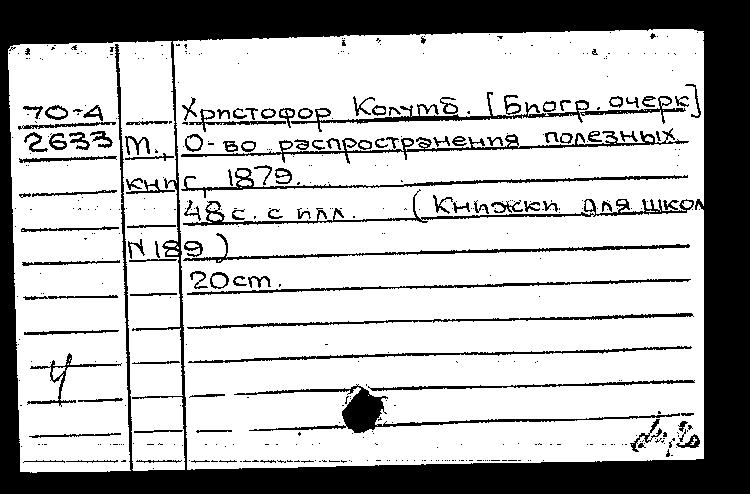 70-4 Христофор Колумб. [Биогр. очерк]
2633 М., О-во распространения полезных
книг, 1879.
48 с. с илл. (Книжки для школ
N 189)
20 cm.
4